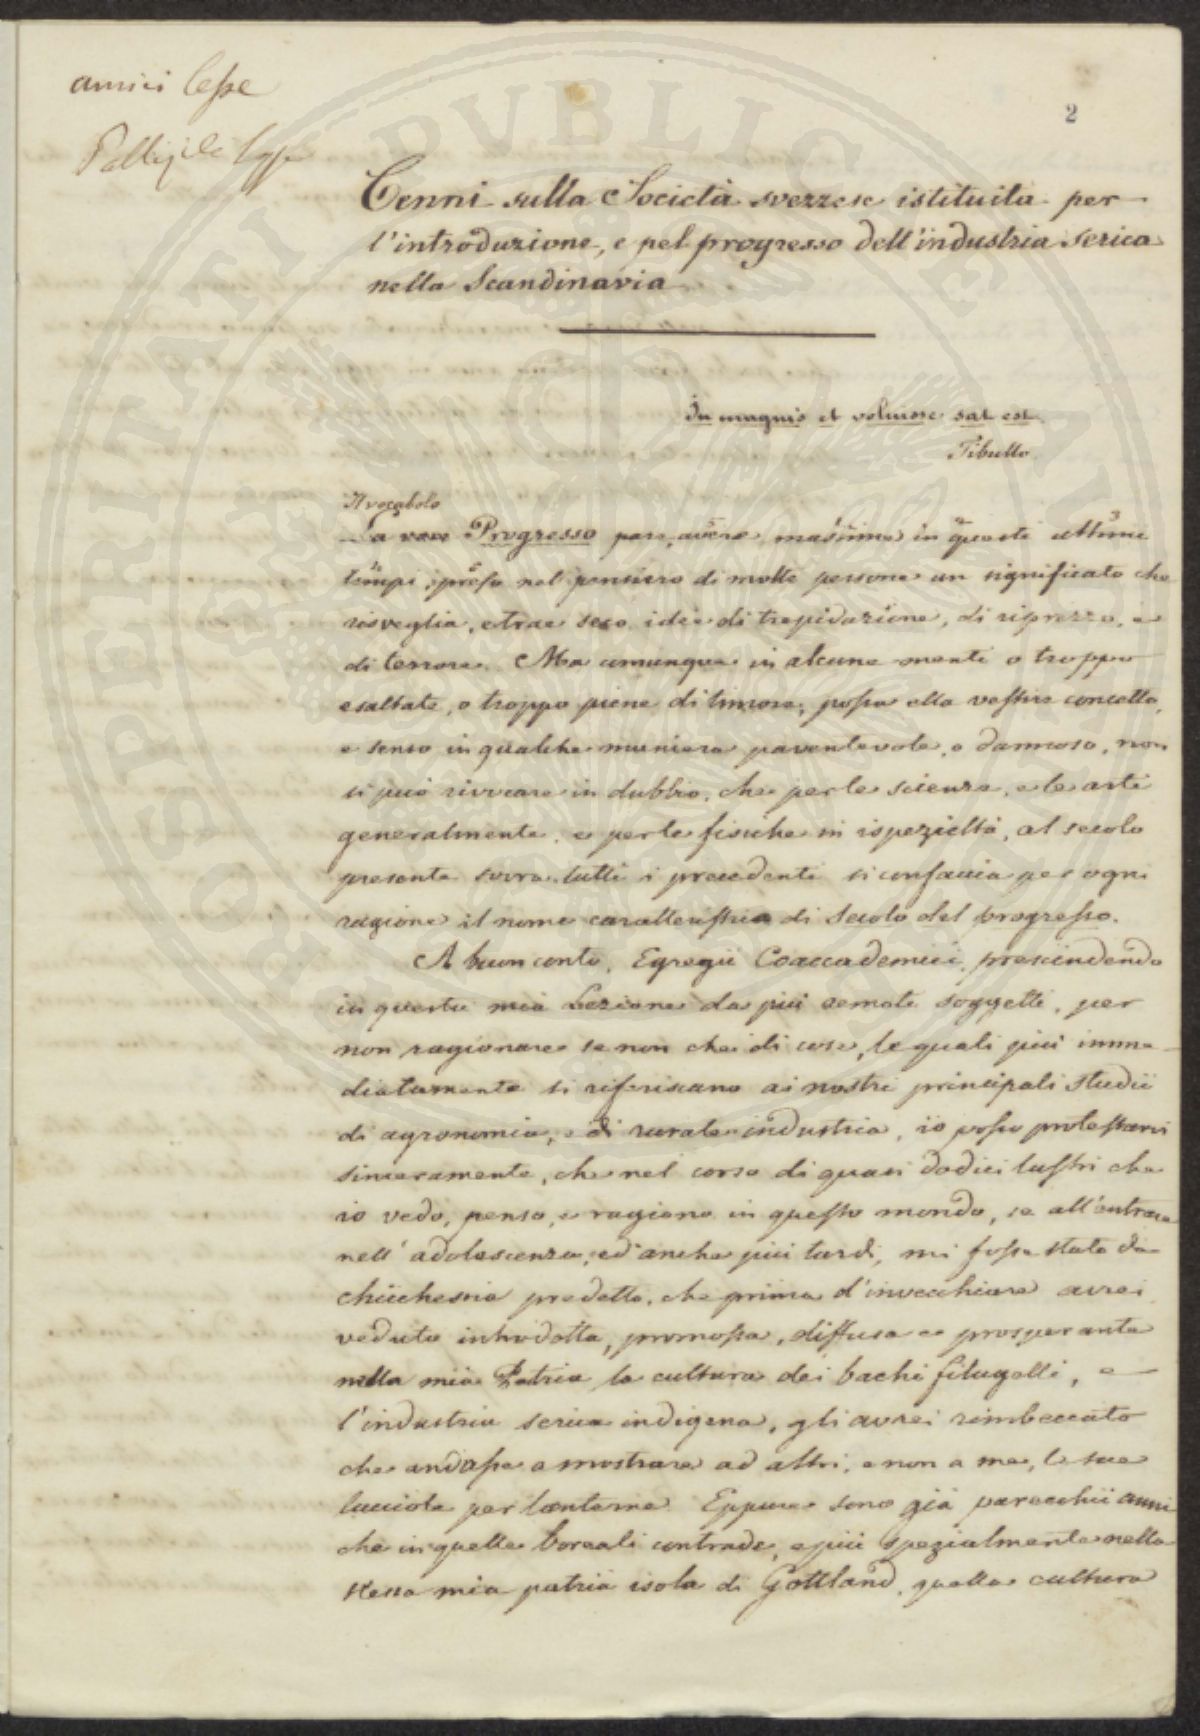 amici lesse
2
Cenni sulla Società svezzese istituita per
l'introduzione, e pel progresso dell'industria serica
nella Scandinavia
In magnis et voluisse sat est.
Tibullo.
Il vocabolo
La voce Progresso pare, avere massime in questi ultimi
tempi, preso nel pensiero di molte persone un significato che
risveglia, e trae seco idee di trepidazione, di riprezzo, e
di terrore. Ma comunque in alcune menti o troppo
esaltate, o troppo piene di timore, possa ella vestire concetto,
e senso in qualche maniera paventevole, o dannoso, non
si può rivocare in dubbio, che per le scienze, e le arti
generalmente, e per le fisiche in ispezieltà, al secolo
presente sovra tutti i precedenti si confaccia per ogni
ragione il nome caratteristico di Secolo del progresso.
A buon conto, Egregii Coaccademici, prescindendo
in questa mia Lezione da più remoti soggetti, per
non ragionare se non che di cose, le quali più imme-
diatamente si riferiscano ai nostri principali studii
di agronomia, e di rurale industria, io posso protestarvi
sinceramente, che nel corso di quasi dodici lustri che
io vedo, penso, e ragiono in questo mondo, se all'entrare
nell'adolescenza, ed anche più tardi, mi fosse stato da
chicchesia predetto, che prima d'invecchiare avrei
veduto introdotta, promossa, diffusa e prosperante
nella mia Patria la cultura dei bachi filugelli, e
l'industria serica indigena, gli avrei rimbeccato
che andasse a mostrare ad altri, e non a me, le sue
lucciole per lanterne. Eppure sono già parecchii anni
che in quelle boreali contrade, e più spezialmente nella
stessa mia patria isola di Gottland, quella cultura
PROSPERITATI PVBLICAE AVGENDAE